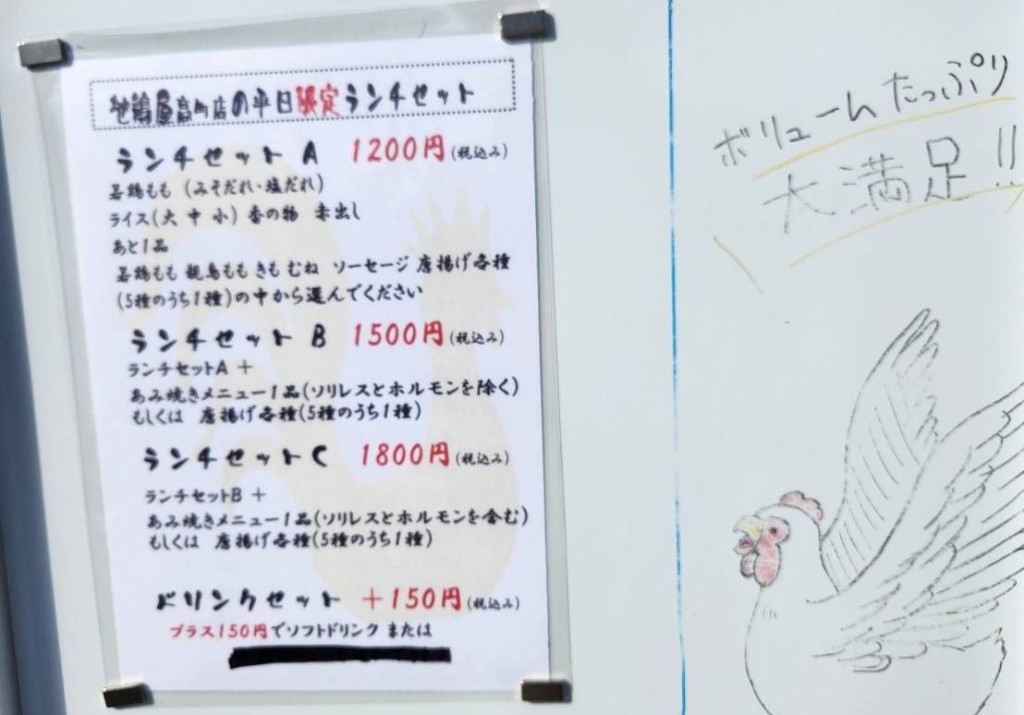 地鶏屋高町店の平日限定ランチセット
ランチセット A 1200円(税込み)
若鶏もも (みそだれ・塩だれ)
ライス(大 中 小) 香の物 赤出し
あと1品
若鶏もも 親鳥もも きも むね ソーセージ 唐揚げ各種
(5種のうち1種)の中から選んでください
ランチセット B 1500円(税込み)
ランチセットA +
あみ焼きメニュー1品(ソリレスとホルモンを除く)
もしくは 唐揚げ各種(5種のうち1種)
ランチセットC 1800円(税込み)
ランチセットB +
あみ焼きメニュー1品(ソリレスとホルモンを含む)
もしくは 唐揚げ各種(5種のうち1種)
ドリンクセット +150円(税込み)
プラス150円でソフトドリンク または
ボリュームたっぷり
大満足!!